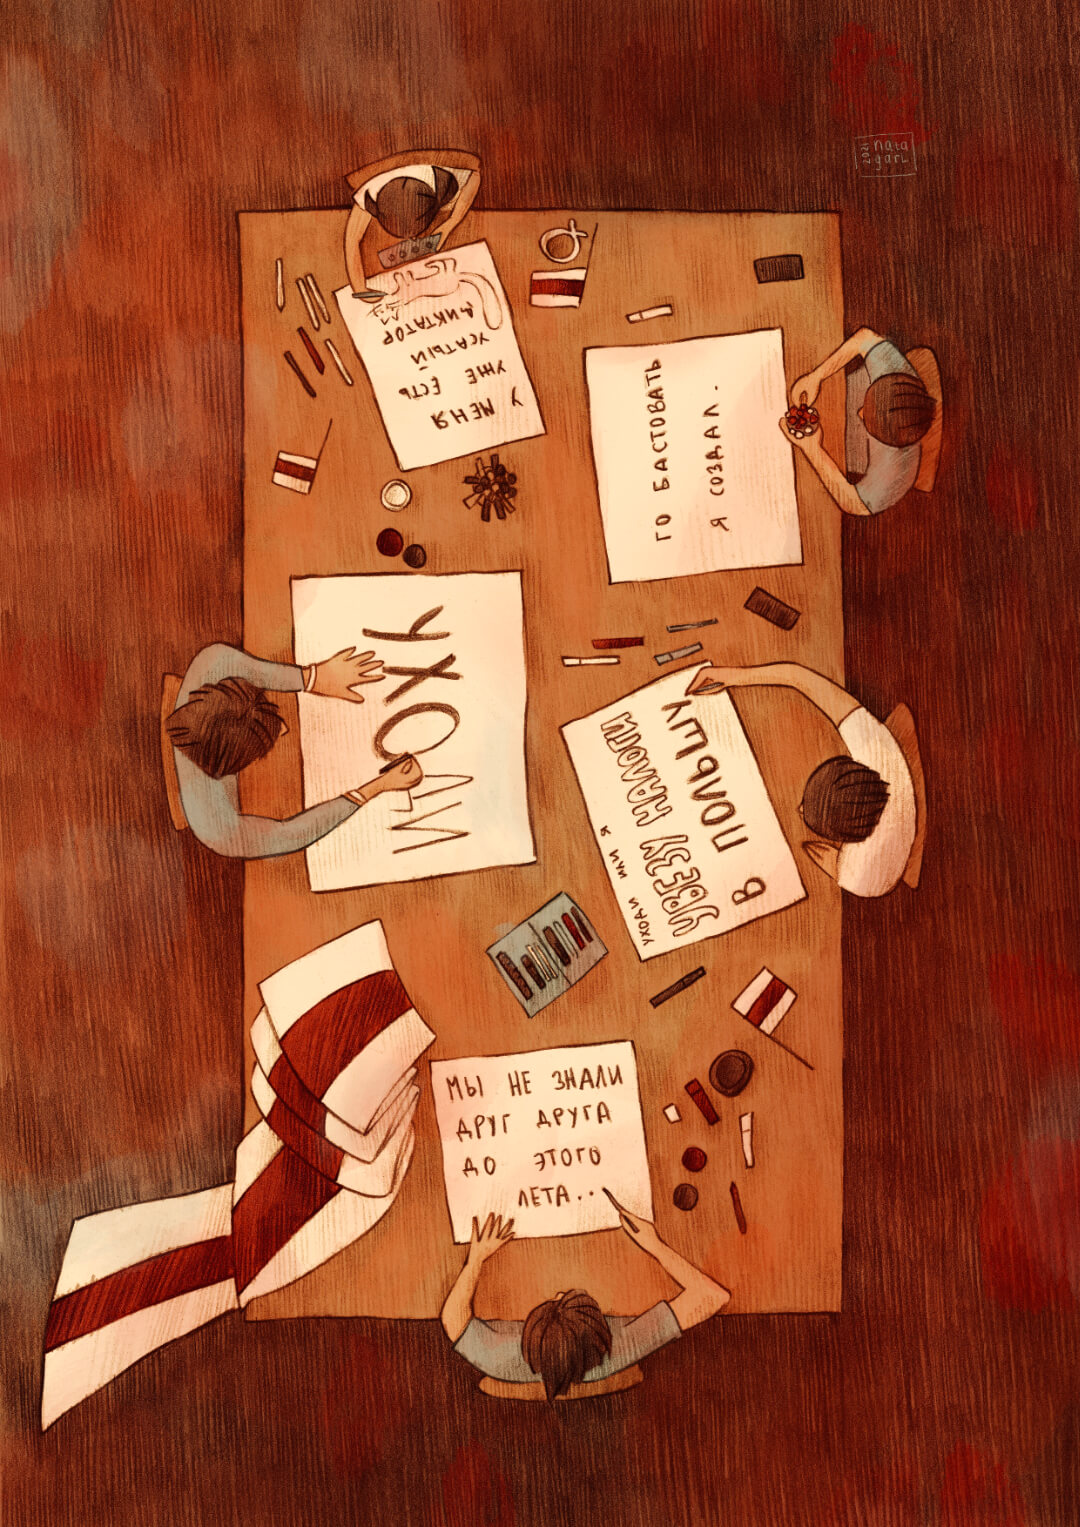 2021
nata
gari
У МЕНЯ
УЖЕ ЕСТЬ
УСАТЫЙ
ДИКТАТОР
ГО БАСТОВАТЬ
Я СОЗДАЛ.
УХОДИ
УХОДИ ИЛИ Я
УВЕЗУ НАЛОГИ
В ПОЛЬШУ
МЫ НЕ ЗНАЛИ
ДРУГ ДРУГА
ДО ЭТОГО
ЛЕТА...